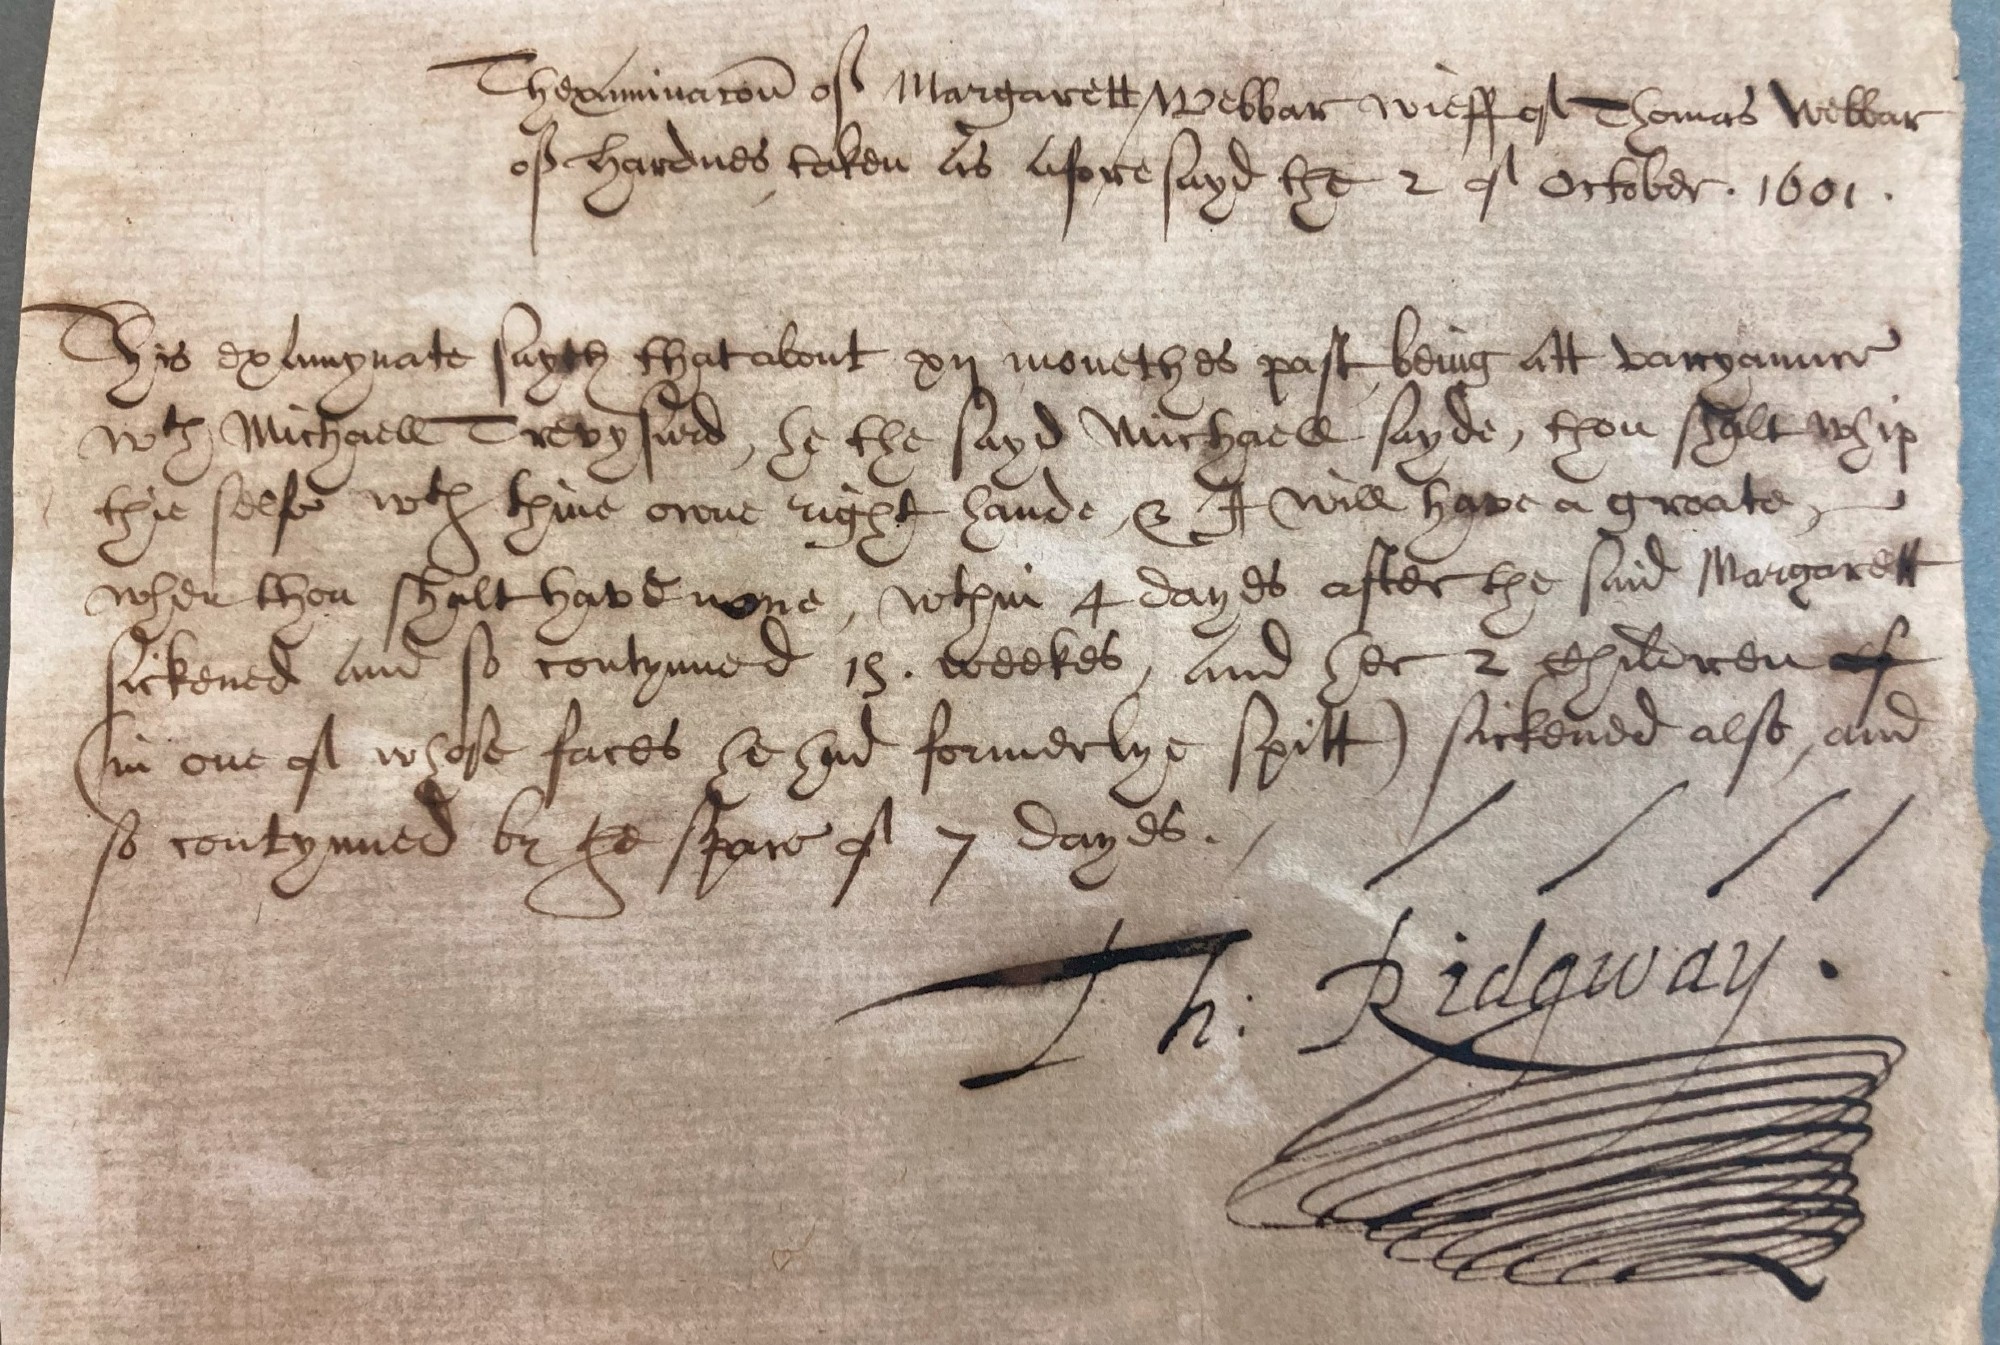 Thexaminacon of Margarett Webbar wieff of Thomas Webbar
of hardnes, taken As Afore sayd the 2 of October. 1601.
This examynate sayth that about xij monethes past, being Att varyaunce
wth Michaell Trevysard, he the sayd Michaell sayde, thou shalt whip
thie selfe wth thine owne right hande, & I will have a groate,
when thou shalt have none, wthin 4 dayes after the said Margarett
sickened and so contynued 15. weekes, and her 2 children
(in one of whose faces he had formerlye spitt) sickened also, and
so contynued by the space of 7 dayes.
Th: Ridgway.